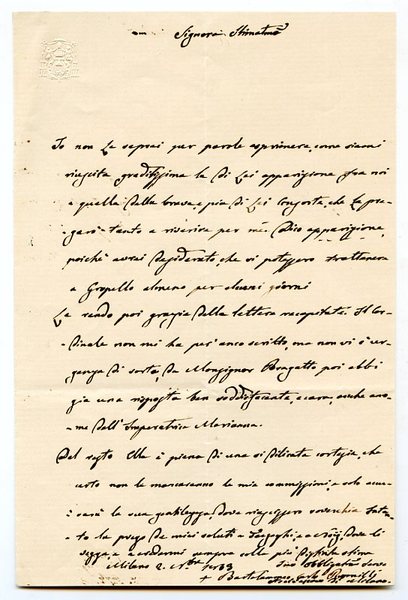 Signora Stimatma
Io non Le saprei per parole esprimere, come siami
riescita graditissima la di Lei apparizione fra noi
e quella della brava, e pia di Lei Consorte, che La pre-
garò tanto a riverire per me. Dico apparizione,
poichè avrei desiderato, che si potessero trattenere
a Gropello almeno per alcuni giorni
Le rendo poi grazie della lettera recapitata. Il Car-
dinale non mi ha per anco scritto, ma non vi è ur-
genza di sorta, da Monsignor Bragatto poi ebbi
già una risposta ben soddisfacente, e cara, anche a no-
me dell'Imperatrice Marianna.
Del resto Ella è piena di una sì dilicata cortesia, che
certo non le mancaranno le mie commissioni, e solo accu-
sarò la sua gentilezza, dove riescissero soverchie.
La prego de' miei saluti
e a credermi sempre colla più distinta stima
Milano 2. Nbre
Suo obbligatmo servo
+ Bartolomeo Carlo